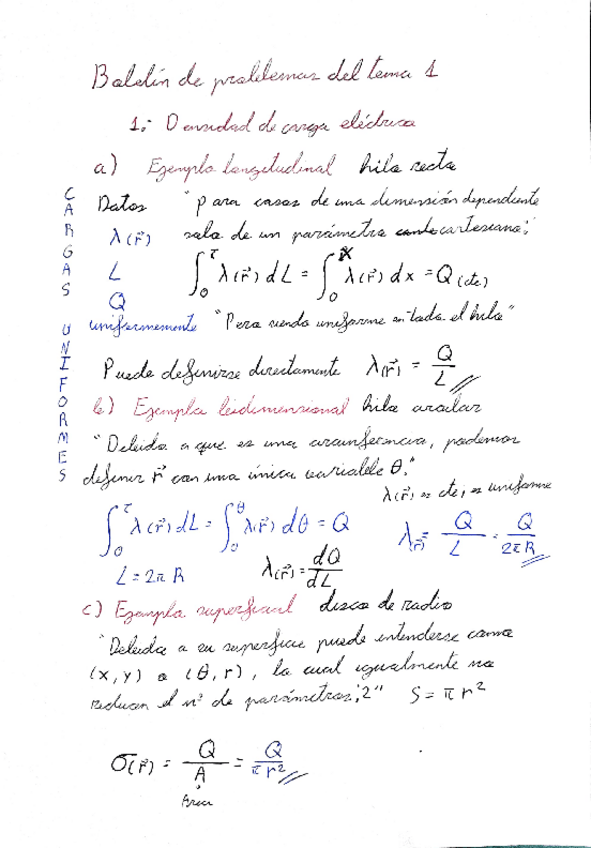 Boletín de problemas del tema 1
1.- Densidad de carga eléctrica
a) Ejemplo longitudinal hilo recto
CARGAS UNIFORMES
Datos "para casos de una dimensión dependiente
λ(r⃗) solo de un parámetro cartesiano;
L ∫₀^τ λ(r⃗) dL = ∫₀^X λ(r⃗) dx = Q (cte)
Q
uniformemente "Pero siendo uniforme en todo el hilo"
Puede definirse directamente λ(r⃗) = Q/L
b) Ejemplo bidimensional hilo circular
"Debido a que es una circunferencia, podemos
definir r⃗ con una única variable θ."
λ(r⃗) es cte, es uniforme
∫₀^τ λ(r⃗) dL = ∫₀^θ λ(r⃗) dθ = Q λ(r⃗) = Q/L = Q/2πR
L = 2πR λ(r⃗) = dQ/dL
c) Ejemplo superficial disco de radio
"Debido a su superficie puede entenderse como
(x, y) o (θ, r), lo cual igualmente no
reducen el nº de parámetros; 2" S = πr²
σ(r⃗) = Q/A = Q/πr²
Área